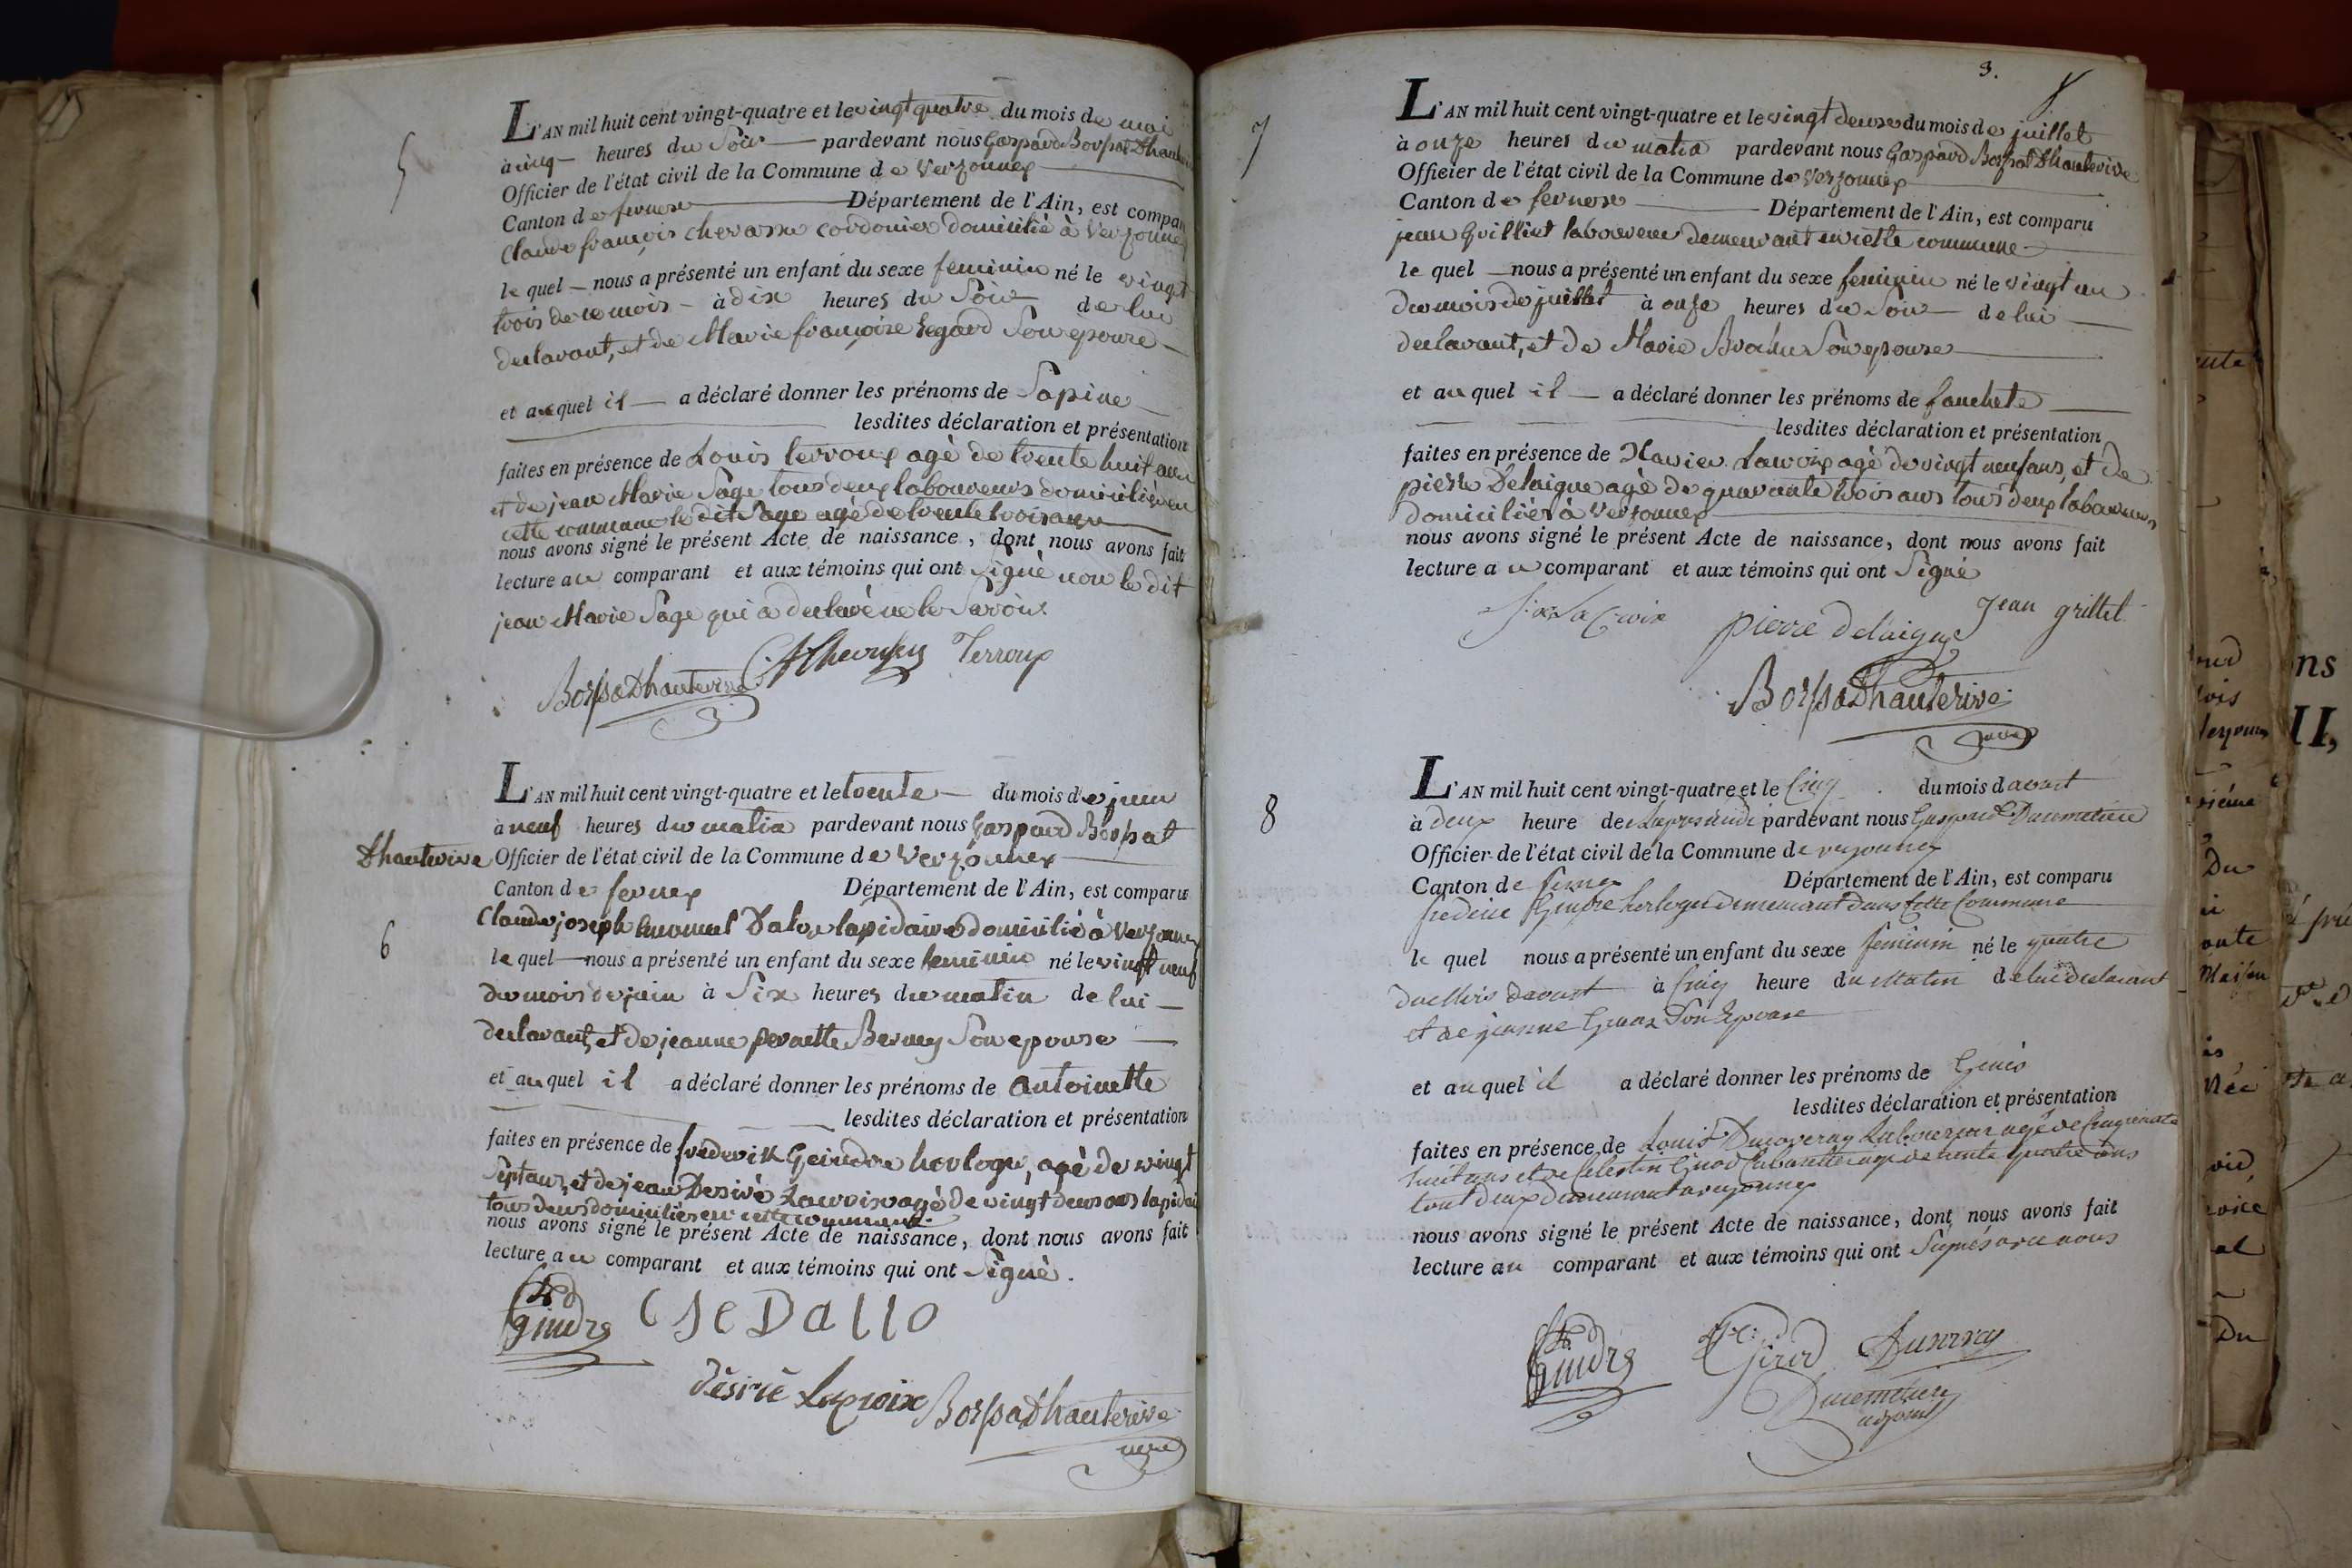 5
L'AN mil huit cent vingt-quatre et le vingt quatre du mois de mai
à cinq heures du Soir pardevant nous Gaspard Borssat Dhauterive
Officier de l'état civil de la Commune de Verzonnex
Canton de fernex Département de l'Ain, est comparu
Claude françois chevassu cordonier domicilié à Verzonnex
le quel nous a présenté un enfant du sexe feminin né le vingt
trois de ce mois à dix heures du Soir de lui
declarant, et de Marie françoise Regard Son epouse
et au quel il a déclaré donner les prénoms de Sapine
lesdites déclaration et présentation
faites en présence de Louis terroux agè de trente huit ans
et de jean Marie Sage tous deux laboureurs domiciliés en
cette commune le dit Sage agé de trente trois ans
nous avons signé le présent Acte de naissance, dont nous avons fait
lecture au comparant et aux témoins qui ont Signé non le dit
jean Marie Sage qui a declaré ne le Savoir.
Terroux
BorssaDhauterive
L'AN mil huit cent vingt-quatre et le trente du mois de juin
à neuf heures du matin pardevant nous Gaspard Borssat
Dhauterive Officier de l'état civil de la Commune de Verzonnex
Canton de fernex Département de l'Ain, est comparu
6
Claude joseph Dalox lapidaire domicilié à Verzonnex
le quel nous a présenté un enfant du sexe feminin né le vingt neuf
du mois de juin à Six heures du matin de lui
declarant, et de jeanne pernette Berney Son epouse
et au quel il a déclaré donner les prénoms de antoinette
lesdites déclaration et présentation
faites en présence de frederick Geindre horloger, agé de vingt
Sept ans, et de jean Desiré Lacroix agé de vingt deux ans lapidai
tous deux domiciliés en cette commune.
nous avons signé le présent Acte de naissance, dont nous avons fait
lecture au comparant et aux témoins qui ont Signé.
gindre CJeDallo
Désiré Lacroix BorssaDhauterive
maire
3.
7
L'AN mil huit cent vingt-quatre et le vingt deux du mois de juillet
à onze heures du matin pardevant nous Gaspard Borssat Dhauterive
Officier de l'état civil de la Commune de Verzonnex
Canton de fernex Département de l'Ain, est comparu
jean Grillet laboureur demeurant en cette commune
le quel nous a présenté un enfant du sexe feminin né le vingt un
du mois de juillet à onze heures du Soir de lui
declarant, et de Marie Brochu Son epouse
et au quel il a déclaré donner les prénoms de fanchete
lesdites déclaration et présentation
faites en présence de Xavier Lacroix agé de vingt neuf ans, et de
pierre Delaigue agè de quarante trois ans tous deux laboureurs
domiciliés à Verzonnex
nous avons signé le présent Acte de naissance, dont nous avons fait
lecture a u comparant et aux témoins qui ont Signé
LaCroix pierre delaigue Jean grillet
BorssaDhauterive
maire
8
L'AN mil huit cent vingt-quatre et le Cinq du mois d aoust
à deux heure de Lapresmidi pardevant nous Gaspard Ducimetiere
Officier de l'état civil de la Commune de verzonnex
Canton de fernex Département de l'Ain, est comparu
frederic Gindre horloger demeurant dans Cette Commune
le quel nous a présenté un enfant du sexe feminin né le quatre
du Mois daoust à Cinq heure du Matin de lui declarant
et de jeanne Son Epouse
et au quel il a déclaré donner les prénoms de
lesdites déclaration et présentation
faites en présence de Louis Laboureur agé de Cinquante
huit ans et de Celestin Girod agé de trente quatre ans
tout deux demeurant a verzonnex
nous avons signé le présent Acte de naissance, dont nous avons fait
lecture au comparant et aux témoins qui ont Signés avec nous
gindre Girod
Ducimetiere
adjoint